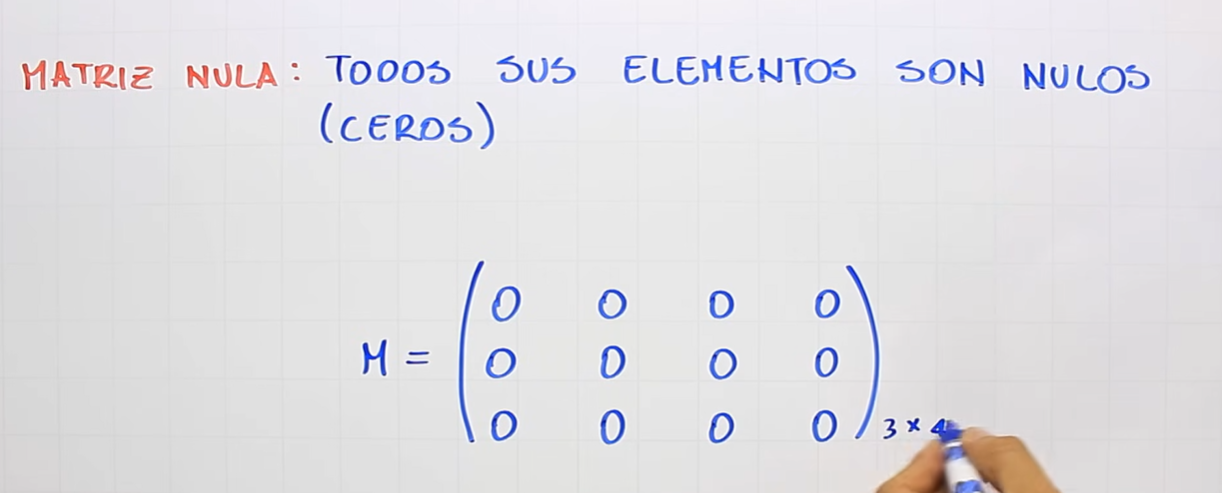 MATRIZ NULA: TODOS SUS ELEMENTOS SON NULOS
(CEROS)
M = ( 0 0 0 0
0 0 0 0
0 0 0 0 ) 3 × 4